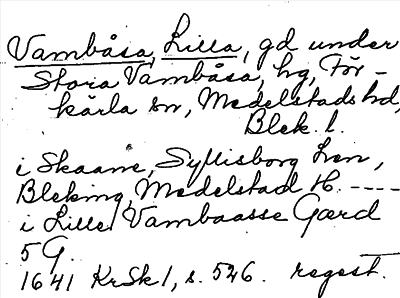 Vambåsa, Lilla, gd under
Stora Vambåsa, hg, För-
kärla sn, Medelstads hd,
Blek. l.
i Skaane, Sylltisborg Len,
Bleking, Medelstad H. ----
i Lille Vambaasse Gaard
5 G.
1641 KrSk 1, s. 526. regest.